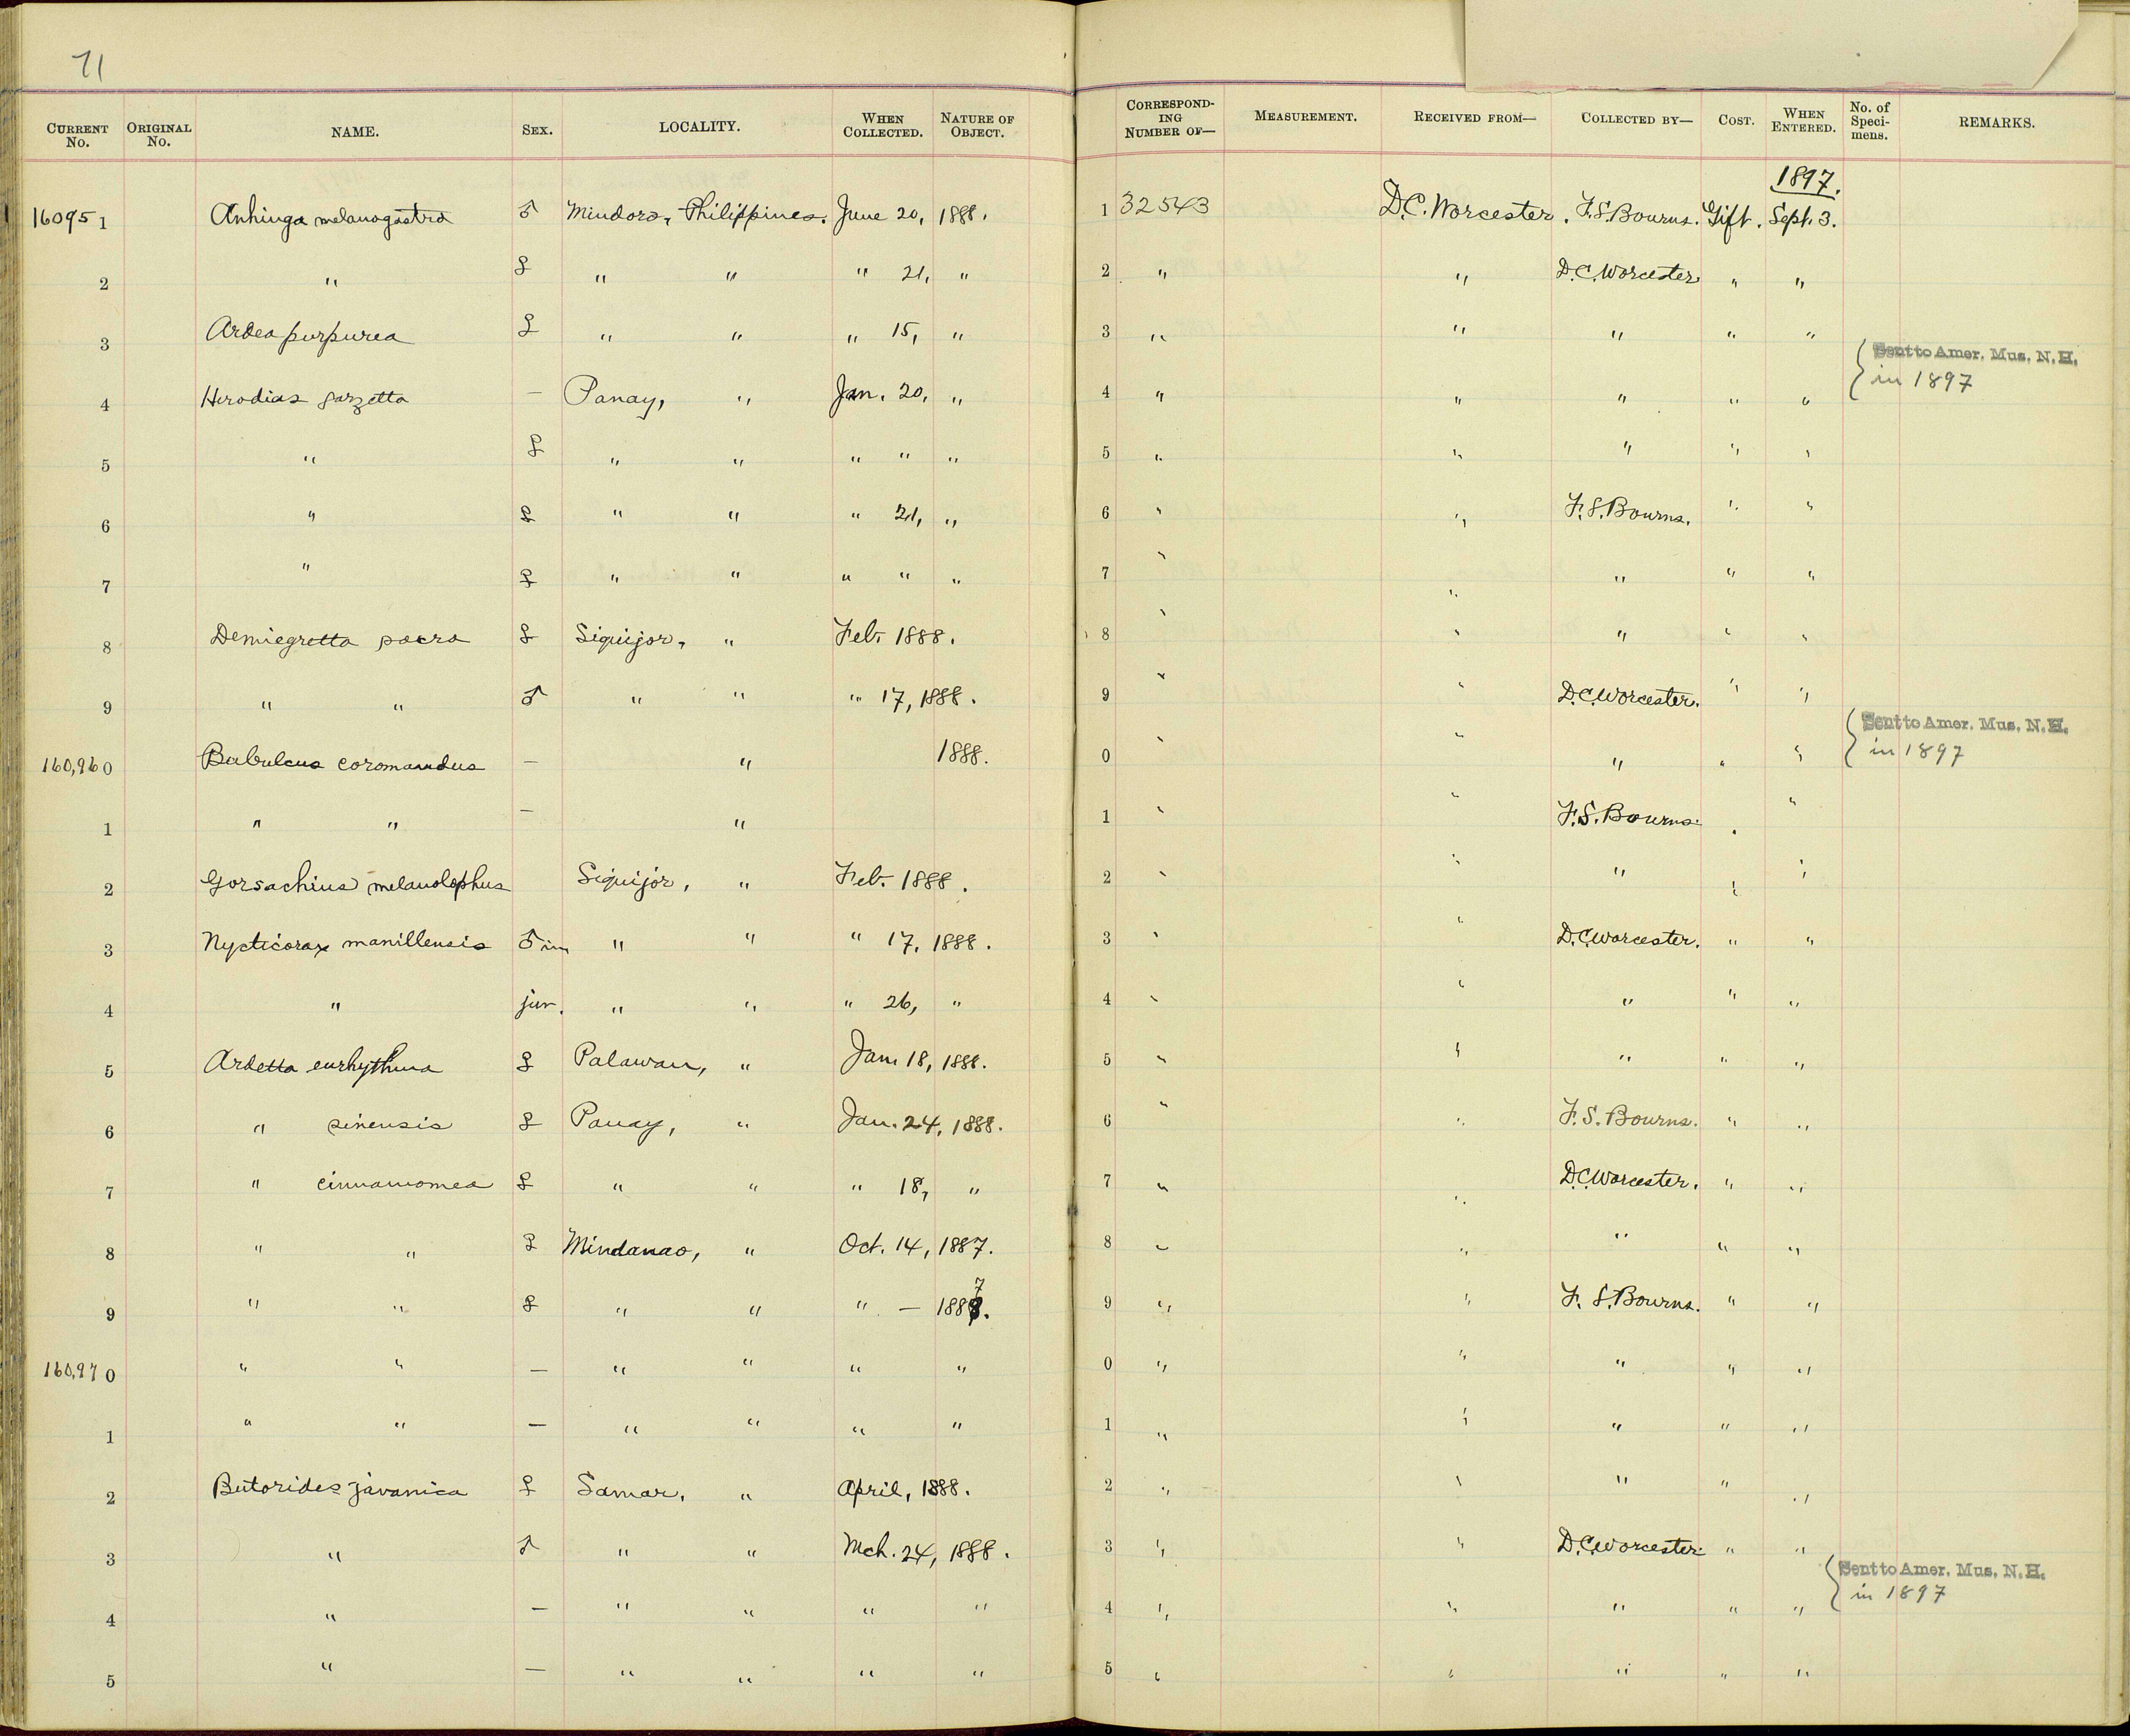 71
CURRENT No. ORIGINAL No. NAME. SEX. LOCALITY. WHEN COLLECTED. NATURE OF OBJECT. CORRESPONDING NUMBER OF— MEASUREMENT. RECEIVED FROM— COLLECTED BY— COST. WHEN ENTERED. No. of Specimens. REMARKS.
1897.
160951 Anhinga melanogastra ♂ Mindoro, Philippines. June 20, 1888. 1 32543 D.C. Worcester. F.S. Bourns. Gift. Sept. 3.
2 " ♀ " " " 21, " 2 " " D.C. Worcester " "
3 Ardea purpurea ♀ " " " 15, " 3 " " " " "
Sent to Amer. Mus. N.H.
in 1897
4 Herodias garzetta — Panay, " Jan. 20, " 4 " " " " "
5 " ♀ " " " " " 5 " " " " "
6 " ♀ " " " 21, " 6 " " F.S. Bourns. " "
7 " ♀ " " " " " 7 " " " " "
8 Demiegretta sacra ♀ Siquijor, " Feb. 1888. 8 " " " " "
9 " " ♂ " " " 17, 1888. 9 " " D.C. Worcester. " "
Sent to Amer. Mus. N.H.
in 1897
160,960 Bubulcus coromandus — " 1888. 0 " " " " "
1 " " — " 1 " " F.S. Bourns. " "
2 Gorsachius melanolophus Siquijor, " Feb. 1888. 2 " " " " "
3 Nycticorax manillensis ♂ im " " " 17, 1888. 3 " " D.C. Worcester. " "
4 " juv. " " " 26, " 4 " " " " "
5 Ardetta eurhythma ♀ Palawan, " Jan. 18, 1888. 5 " " " " "
6 " sinensis ♀ Panay, " Jan. 24, 1888. 6 " " F.S. Bourns. " "
7 " cinnamomea ♀ " " " 18, " 7 " " D.C. Worcester. " "
8 " " ♀ Mindanao, " Oct. 14, 1887. 8 " " " " "
9 " " ♀ " " " — 1887. 9 " " F. S. Bourns. " "
160,970 " " — " " " " 0 " " " " "
1 " " — " " " " 1 " " " " "
2 Butorides javanica ♀ Samar, " April, 1888. 2 " " " " "
3 " ♂ " " Mch. 24, 1888. 3 " " D.C. Worcester. " "
Sent to Amer. Mus. N.H.
in 1897
4 " — " " " " 4 " " " " "
5 " — " " " " 5 " " " " "